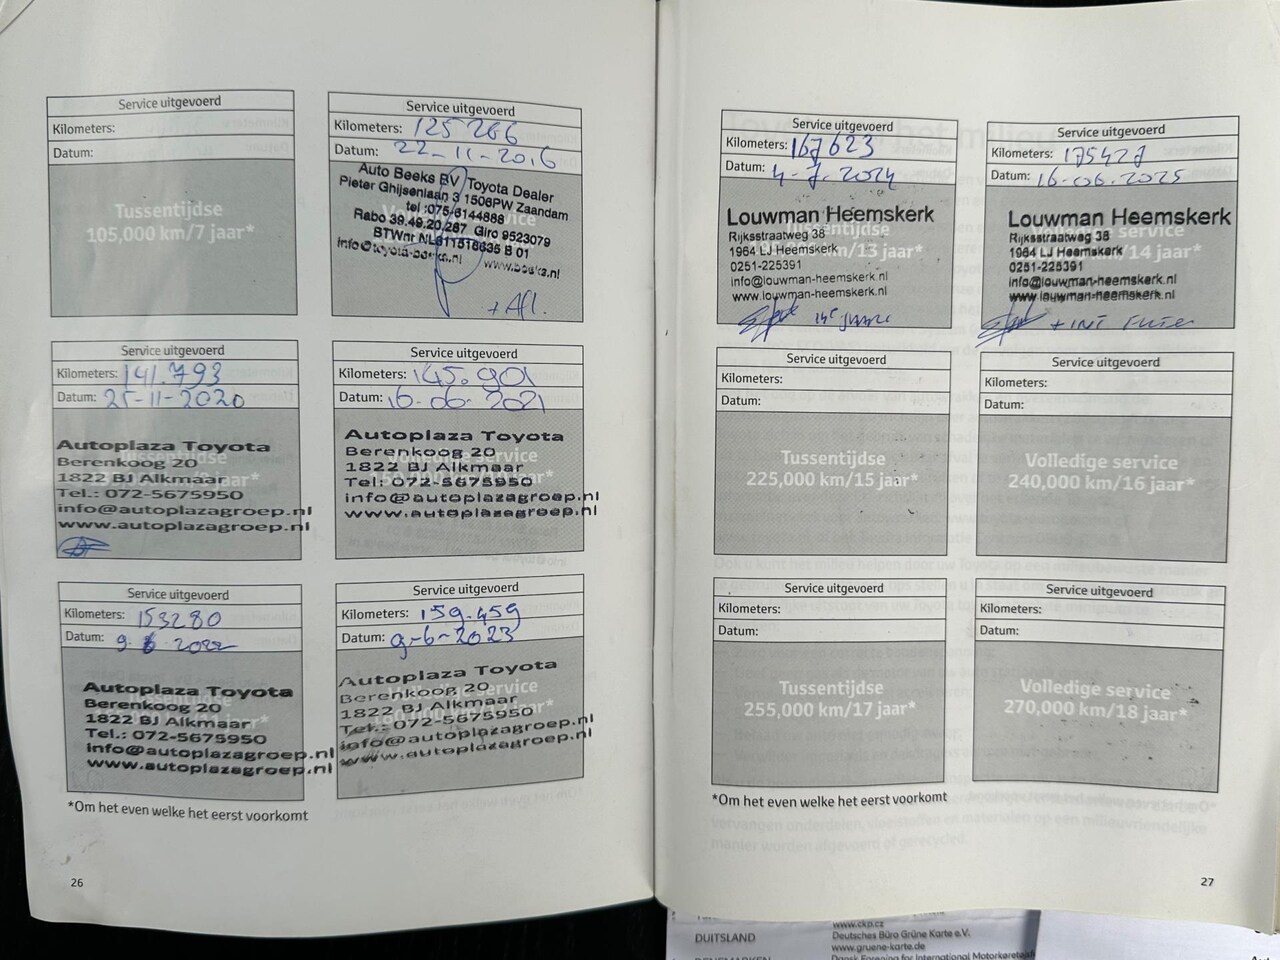 Service uitgevoerd
Kilometers:
Datum:
Tussentijdse
105,000 km/7 jaar*
Service uitgevoerd
Kilometers: 125266
Datum: 22-11-2016
Auto Beeks BV Toyota Dealer
Pieter Ghijsenlaan 3 1506PW Zaandam
tel :075-6144868
Rabo 39.49.20.267 Giro 9523079
BTWnr NL811516635 B 01
info@toyota-beeks.nl www.beeks.nl
+ Afl.
Service uitgevoerd
Kilometers: 141.793
Datum: 25-11-2020
Autoplaza Toyota
Berenkoog 20
1822 BJ Alkmaar
Tel.: 072-5675950
info@autoplazagroep.nl
www.autoplazagroep.nl
Service uitgevoerd
Kilometers: 145.901
Datum: 16-06-2021
Autoplaza Toyota
Berenkoog 20
1822 BJ Alkmaar
Tel.: 072-5675950
info@autoplazagroep.nl
www.autoplazagroep.nl
Service uitgevoerd
Kilometers: 153280
Datum: 9 6 2022
Autoplaza Toyota
Berenkoog 20
1822 BJ Alkmaar
Tel.: 072-5675950
info@autoplazagroep.nl
www.autoplazagroep.nl
Service uitgevoerd
Kilometers: 159.459
Datum: 9-6-2023
Autoplaza Toyota
Berenkoog 20
1822 BJ Alkmaar
Tel.: 072-5675950
info@autoplazagroep.nl
www.autoplazagroep.nl
*Om het even welke het eerst voorkomt
26
Service uitgevoerd
Kilometers: 167623
Datum: 4-7-2024
Louwman Heemskerk
Rijksstraatweg 38
1964 LJ Heemskerk
0251-225391
info@louwman-heemskerk.nl
www.louwman-heemskerk.nl
Service uitgevoerd
Kilometers: 175427
Datum: 16-06-2025
Louwman Heemskerk
Rijksstraatweg 38
1964 LJ Heemskerk
0251-225391
info@louwman-heemskerk.nl
www.louwman-heemskerk.nl
Service uitgevoerd
Kilometers:
Datum:
Tussentijdse
225,000 km/15 jaar*
Service uitgevoerd
Kilometers:
Datum:
Volledige service
240,000 km/16 jaar*
Service uitgevoerd
Kilometers:
Datum:
Tussentijdse
255,000 km/17 jaar*
Service uitgevoerd
Kilometers:
Datum:
Volledige service
270,000 km/18 jaar*
*Om het even welke het eerst voorkomt
27
www.ckp.cz
DUITSLAND
Deutsches Büro Grüne Karte e.V.
www.gruene-karte.de
Dansk Forening for International